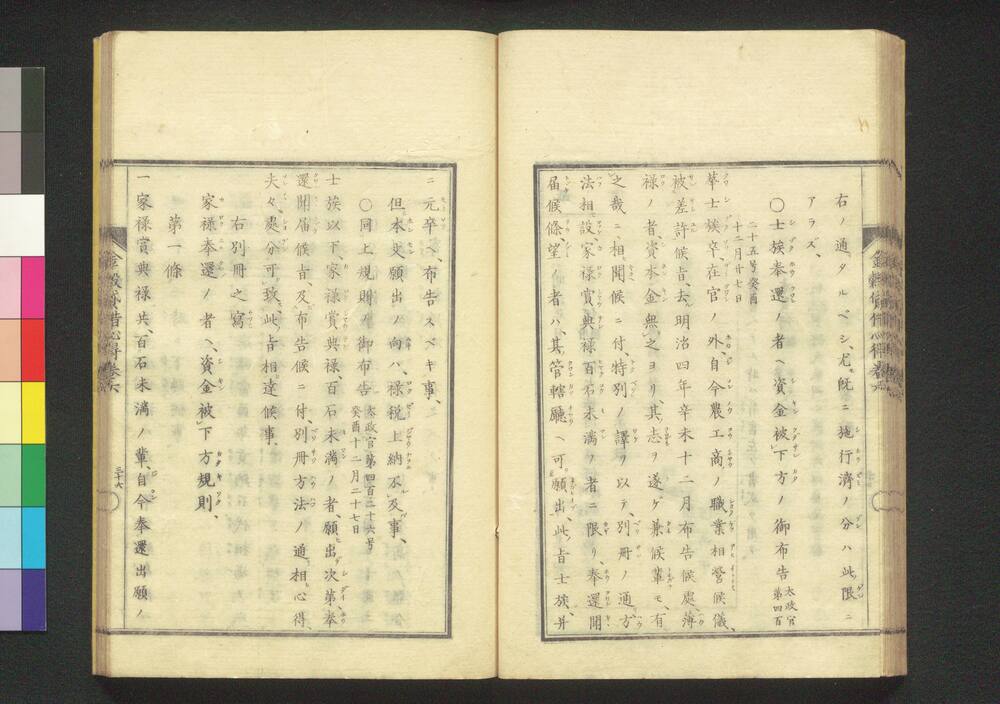 右ノ通タルベシ、尤既ニ施行濟ノ分ハ此限ニ
アラズ、
〇士族奉還ノ者ヘ資金被下方ノ御布告 太政官第四百
二十五号癸酉
十二月廿七日
華士族卒、在官ノ外、自今農工商ノ職業相營候儀、
被差許候旨、去明治四年辛未十二月布告候處薄
禄ノ者、資本金無之ヨリ、其志ヲ遂ゲ兼候輩モ、有
之哉ニ、相聞候ニ付、特別ノ譯ヲ以テ、別冊ノ通方
法相設、家禄賞典禄百石未満ノ者ニ限リ、奉還聞
届候條、望ノ者ハ、其管轄廳ヘ可願出、此旨士族、并
ニ元卒、布告スベキ事、
但本文願出ノ向ハ、禄税上納不及事、
〇同上規則 御布告 太政官第四百二十六号
癸酉十二月二十七日
士族以下、家禄賞典禄、百石未満ノ者、願出次第奉
還聞届候旨、及布告候ニ付別冊方法ノ通相心得、
夫々處分可致、此旨相達候事、
右別冊之寫
家禄奉還ノ者ヘ、資金被下方規則、
第一條
一家禄賞典禄共、百石未満ノ輩、自今奉還出願ノ
金穀貸借心得巻六
三十六